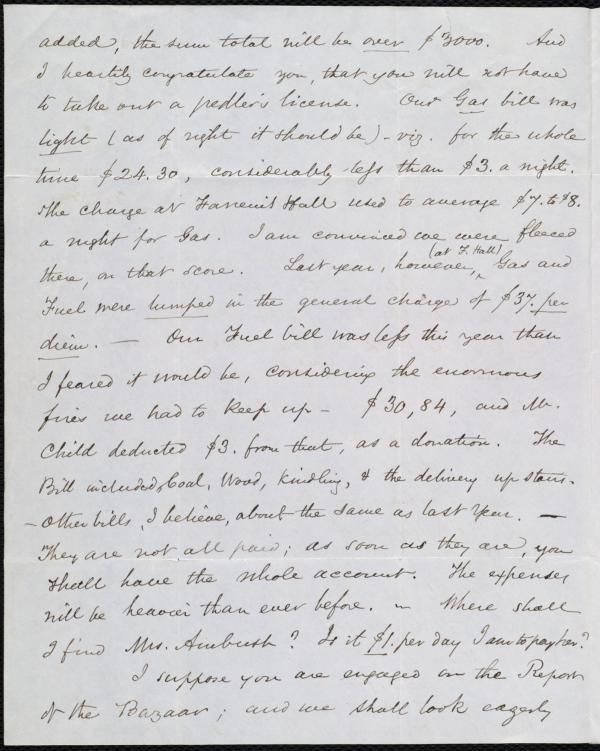 added, the sum total will be over $3000. And
I heartily congratulate you, that you will not have
to take out a pedler's license. Our Gas bill was
light (as of right it should be) - viz. for the whole
time $24.30, considerably less than $3. a night.
The charge at Faneuil Hall used to average $7. to $8.
a night for Gas. I am convinced we were fleeced
there, on that score. Last year, however, (at F. Hall) Gas and
Fuel were lumped in the general charge of $37. per
diem. — Our Fuel bill was less this year than
I feared it would be, considering the enormous
fires we had to keep up - $30,84, and Mr.
Child deducted $3. from that, as a donation. The
Bill included, Coal, Wood, kindling, & the delivery up stairs.
- Other bills, I believe, about the same as last year. —
They are not all paid; as soon as they are, you
shall have the whole account. The expenses
will be heavier than ever before. — Where shall
I find Mrs. Ambush? Is it $1. per day I am to pay her?
I suppose you are engaged on the Report
of the Bazaar; and we shall look eagerly